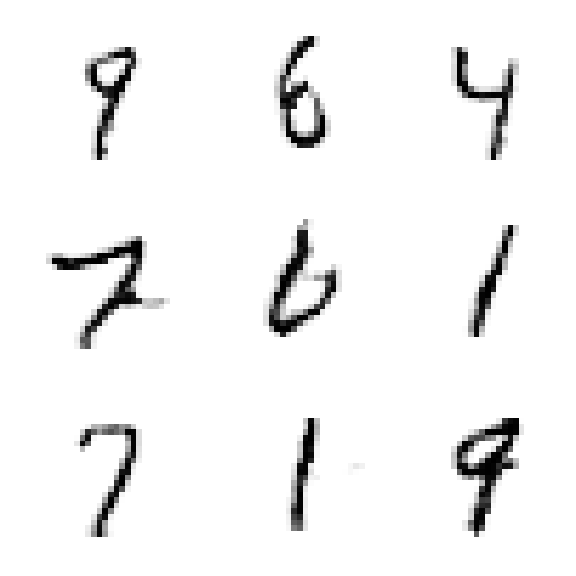 9 6 4
7 6 1
7 1 9